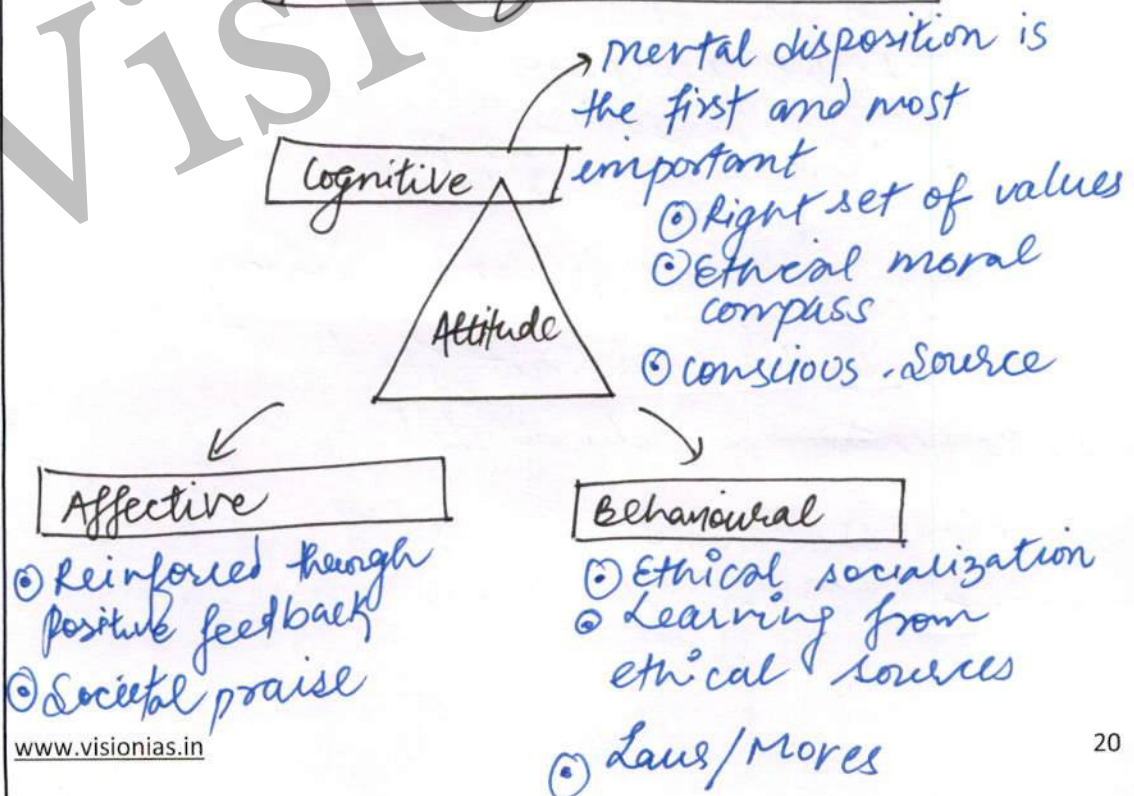 mental disposition is
the first and most
important
Cognitive
Right set of values
Ethical moral
compass
conscious. Source
Attitude
Affective
Reinforced through
Positive feedback
Societal praise
Behavioural
Ethical socialization
Learning from
ethical sources
Laws/Mores
www.visionias.in
20